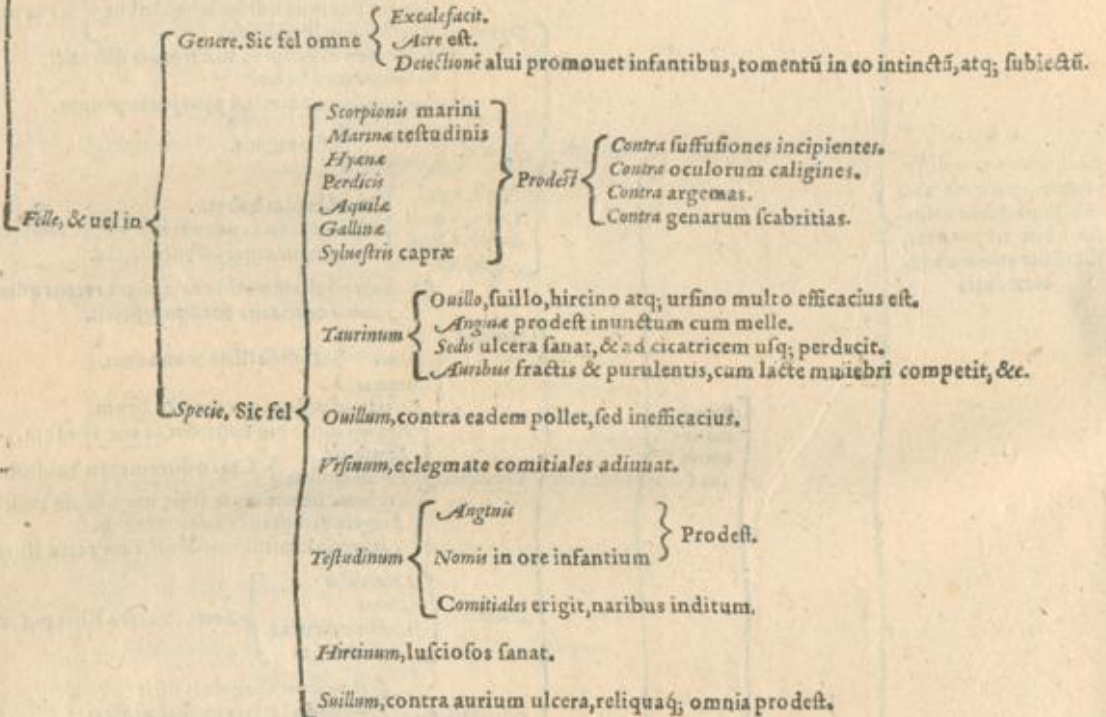 Felle, & uel in
Genere. Sic fel omne
Excalefacit.
Acre est.
Deiectionē alui promouet infantibus, tomentū in eo intinctū, atq; subiectū.
Specie. Sic fel
Scorpionis marini
Marinæ testudinis
Hyænæ
Perdicis
Aquilæ
Gallinæ
Syluestris capræ
Prodest
Contra suffusiones incipientes.
Contra oculorum caligines.
Contra argemas.
Contra genarum scabritias.
Taurinum
Ouillo, suillo, hircino atq; ursino multo efficacius est.
Anginæ prodest inunctum cum melle.
Sedis ulcera sanat, & ad cicatricem usq; perducit.
Auribus fractis & purulentis, cum lacte muliebri competit, &c.
Ouillum, contra eadem pollet, sed inefficacius.
Vrsinum, eclegmate comitiales adiuuat.
Testudinum
Anginis
Nomis in ore infantium
Prodest.
Comitiales erigit, naribus inditum.
Hircinum, lusciosos sanat.
Suillum, contra aurium ulcera, reliquaq́; omnia prodest.